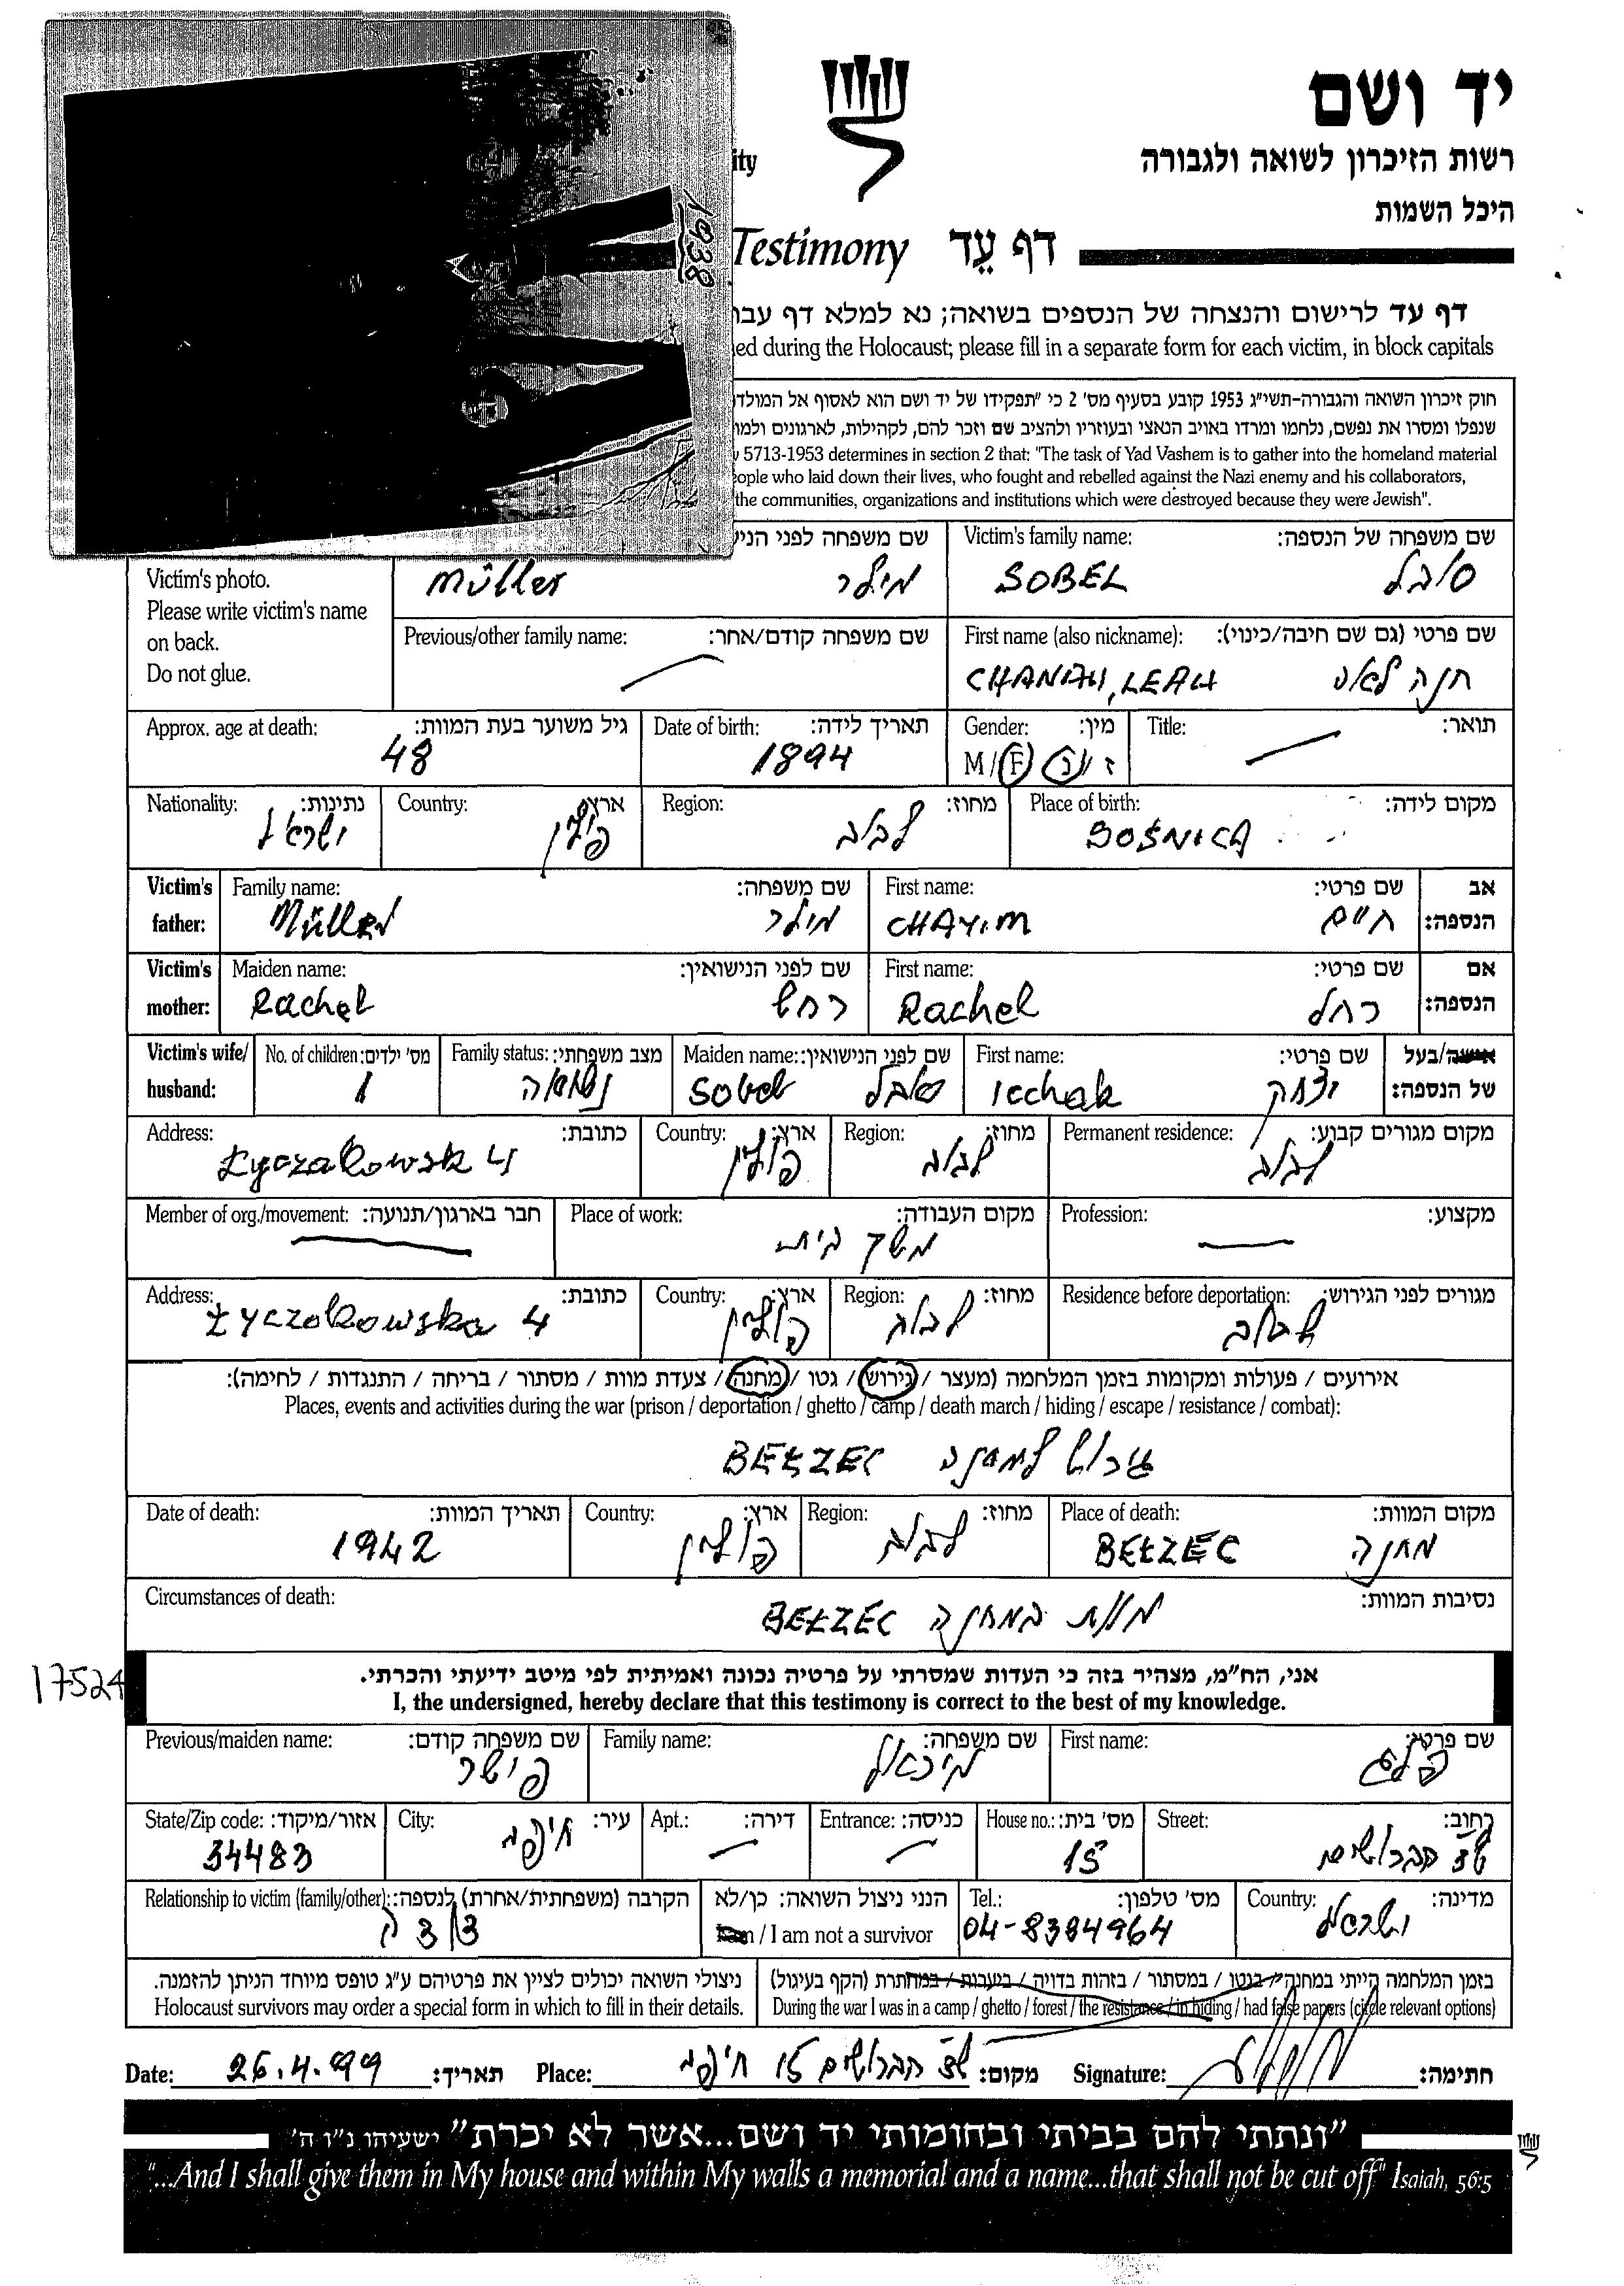 יד ושם
רשות הזיכרון לשואה ולגבורה
היכל השמות
ity
1938
Testimony דף עֵד
דף עד לרישום והנצחה של הנספים בשואה; נא למלא דף עבו
ned during the Holocaust; please fill in a separate form for each victim, in block capitals
חוק זיכרון השואה והגבורה-תשי"ג 1953 קובע בסעיף מס' 2 כי "תפקידו של יד ושם הוא לאסוף אל המולד
שנפלו ומסרו את נפשם, נלחמו ומרדו באויב הנאצי ובעוזריו ולהציב שם וזכר להם, לקהילות, לארגונים ולמו
5713-1953 determines in section 2 that: "The task of Yad Vashem is to gather into the homeland material
eople who laid down their lives, who fought and rebelled against the Nazi enemy and his collaborators,
the communities, organizations and institutions which were destroyed because they were Jewish".
שם משפחה לפני הניש Victim's family name: שם משפחה של הנספה:
Müller מילר SOBEL סובל
Victim's photo.
Please write victim's name
on back.
Do not glue.
Previous/other family name: שם משפחה קודם/אחר: First name (also nickname): שם פרטי (גם שם חיבה/כינוי):
CHANAH, LEAH חנה לאה
Approx. age at death: גיל משוער בעת המוות: Date of birth: תאריך לידה: Gender: מין: Title: תואר:
48 1894 M / F ז / נ
Nationality: נתינות: Country: ארץ: Region: מחוז: Place of birth: מקום לידה:
ישראל פולין לבוב
Victim's father: Family name: שם משפחה: First name: שם פרטי: אב הנספה:
Müller מילר CHAYIM חיים
Victim's mother: Maiden name: שם לפני הנישואין: First name: שם פרטי: אם הנספה:
Rachel רחל Rachel רחל
Victim's wife/ husband: No. of children: מס' ילדים: Family status: מצב משפחתי: Maiden name: שם לפני הנישואין: First name: שם פרטי: אישה/בעל של הנספה:
1 נשואה Sobel סובל Icchak יצחק
Address: כתובת: Country: ארץ: Region: מחוז: Permanent residence: מקום מגורים קבוע:
Łyczakowsk 4 פולין לבוב לבוב
Member of org./movement: חבר בארגון/תנועה: Place of work: מקום העבודה: Profession: מקצוע:
משק בית
Address: כתובת: Country: ארץ: Region: מחוז: Residence before deportation: מגורים לפני הגירוש:
Łyczakowska 4 פולין לבוב לבוב
אירועים / פעולות ומקומות בזמן המלחמה (מעצר / גירוש / גטו / מחנה / צעדת מוות / מסתור / בריחה / התנגדות / לחימה):
Places, events and activities during the war (prison / deportation / ghetto / camp / death march / hiding / escape / resistance / combat):
גרוש למחנה BEŁZEC
Date of death: תאריך המוות: Country: ארץ: Region: מחוז: Place of death: מקום המוות:
1942 פולין לבוב BEŁZEC מחנה
Circumstances of death: נסיבות המוות:
מוות במחנה BEŁZEC
17524
אני, הח"מ, מצהיר בזה כי העדות שמסרתי על פרטיה נכונה ואמיתית לפי מיטב ידיעתי והכרתי.
I, the undersigned, hereby declare that this testimony is correct to the best of my knowledge.
Previous/maiden name: שם משפחה קודם: Family name: שם משפחה: First name: שם פרטי:
פישר מיכאלי
State/Zip code: אזור/מיקוד: City: עיר: Apt.: דירה: Entrance: כניסה: House no.: מס' בית: Street: רחוב:
34483 חיפה 15 שד הברושים
Relationship to victim (family/other): הקרבה (משפחתית/אחרת) לנספה: הנני ניצול השואה: כן/לא Tel.: מס' טלפון: Country: מדינה:
דודה I am / I am not a survivor 04-8384964 ישראל
ניצולי השואה יכולים לציין את פרטיהם ע"ג טופס מיוחד הניתן להזמנה. בזמן המלחמה הייתי במחנה / בגטו / במסתור / בזהות בדויה / ביערות / במחתרת (הקף בעיגול)
Holocaust survivors may order a special form in which to fill in their details. During the war I was in a camp / ghetto / forest / the resistance / in hiding / had false papers (circle relevant options)
Date: 26.4.99 תאריך: Place: שד הברושים 15 חיפה מקום: Signature: חתימה:
"ונתתי להם בביתי ובחומותי יד ושם...אשר לא יכרת" ישעיהו נ"ו ה'
"...And I shall give them in My house and within My walls a memorial and a name...that shall not be cut off" Isaiah, 56:5